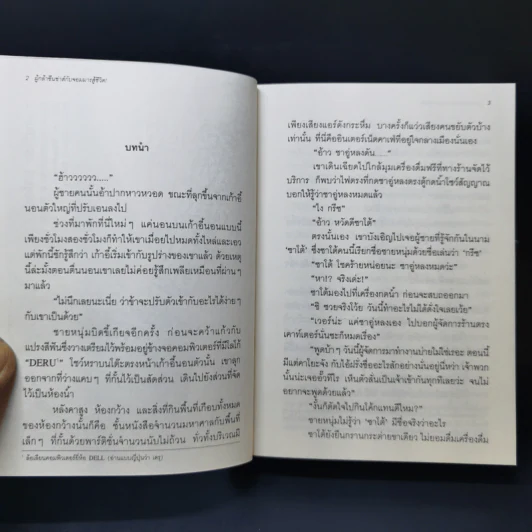 2 ผู้กล้าซึนซาตกับจอมมารสู้ชีวิต
บทนำ
“ฮ้าวววววว.....”
ผู้ชายคนนั้นอ้าปากหาวหวอด ขณะที่ลุกขึ้นจากเก้าอี้
นอนตัวใหญ่ที่ปรับเอนลงไป
ช่วงที่มาพักที่นี่ใหม่ๆ แค่นอนบนเก้าอี้นอนแบบนี้
เพียงชั่วโมงสองชั่วโมงก็ทำให้เขาเมื่อยไปหมดทั้งไหล่และเอว
แต่พักนี้ชักรู้สึกว่า เก้าอี้เริ่มเข้ากับรูปร่างของเขาแล้ว ด้วยเหตุ
นี้ล่ะมั้งตอนตื่นนอนเขาเลยไม่ค่อยรู้สึกเพลียเหมือนที่ผ่านๆ
มาแล้ว
“ไม่นึกเลยนะเนี่ย ว่าข้าจะปรับตัวเข้ากับอะไรได้ง่ายๆ
กับเขาเป็นด้วย”
ชายหนุ่มบิดขี้เกียจอีกครั้ง ก่อนจะคว้าแก้วกับ
แปรงสีฟันซึ่งวางเตรียมไว้พร้อมอยู่ข้างจอคอมพิวเตอร์ที่มีโลโก้
“DERU” โชว์หราบนโต๊ะตรงหน้าเก้าอี้นอนตัวนั้น เขาลุก
ออกจากที่ว่างแคบๆ ที่กั้นไว้เป็นสัดส่วน เดินไปยังส่วนที่จัด
ไว้เป็นห้องน้ำ
หลังคาสูง ห้องกว้าง และสิ่งที่กินพื้นที่เกือบทั้งหมด
ของห้องกว้างนั้นก็คือ ชั้นหนังสือจำนวนมหาศาลกับพื้นที่
เล็กๆ ที่กั้นด้วยพาร์ติชั่นจำนวนนับไม่ถ้วน ทั่วทั้งบริเวณมี
ล้อเลียนคอมพิวเตอร์ยี่ห้อ DELL (อ่านแบบญี่ปุ่นว่า เดรุ)
3
เพียงเสียงแอร์ดังกระหึ่ม บางครั้งก็แว่วเสียงคนขยับตัวบ้าง
เท่านั้น ที่นี่คืออินเตอร์เน็ตคาเฟ่ที่อยู่ใจกลางเมืองนั่นเอง
“อ้าว ชาอู่หลงตัน.....”
เขาเดินเฉียดไปใกล้มุมเครื่องดื่มฟรีที่ทางร้านจัดไว้
บริการ ก็พบว่าไฟตรงที่กดชาอู่หลงตรงตู้กดน้ำโชว์สัญญาณ
บอกให้รู้ว่าชาอู่หลงหมดแล้ว
“ไง กรีช”
“อ้าว หวัดดีซาโต้”
ตรงนั้นเอง เขาบังเอิญไปเจอผู้ชายที่รู้จักกันในนาม
‘ซาโต้’ ซึ่งซาโต้คนนี้เรียกชื่อชายหนุ่มด้วยชื่อเล่นว่า ‘กรีช’
“ซาโต้ โชคร้ายหน่อยนะ ชาอู่หลงหมดว่ะ”
“หา!? จริงเด่ะ!”
ซาโต้มองไปที่เครื่องกดน้ำ ก่อนจะสบถออกมา
“ชิ ซวยจริงโว้ย วันนี้ทำอะไรไม่ได้ดั่งใจเลยว้อย”
“เวอร์น่ะ แค่ชาอู่หลงเอง ไปบอกผู้จัดการร้านตรง
เคาท์เตอร์นั่นซะก็หมดเรื่อง”
“พูดบ้าๆ วันนี้ผู้จัดการมาทำงานบ่ายไม่ใช่เรอะ ตอนนี้
นั้นน่ะเจออั้วทีไร เห็นตัวสั่นเป็นเจ้าเข้ากันทุกทีเลยว่ะ จนไม่
อยากจะพูดด้วยแล้ว”
“งั้นก็ตัดใจไปกินโค้กแทนดีไหม?”
ชายหนุ่มไม่รู้ว่า ‘ซาโต้’ มีชื่อจริงว่าอะไร
ซาโต้ยังยืนกรานกระต่ายขาเดียว ไม่ยอมดื่มเครื่องดื่ม